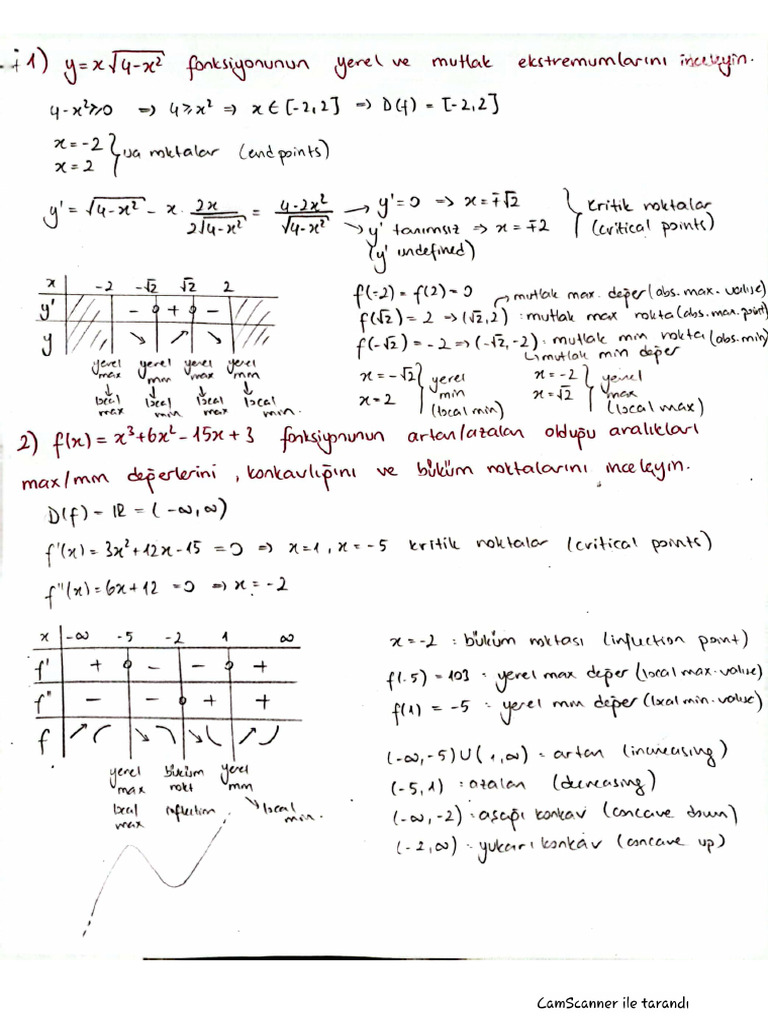 1) y=x√(4-x²) fonksiyonunun yerel ve mutlak ekstremumlarını inceleyin.
4-x²≥0 ⇒ 4≥x² ⇒ x∈[-2,2] ⇒ D(f) = [-2,2]
x=-2
x=2 } uç noktalar (endpoints)
y' = √(4-x²) - x · 2x/(2√(4-x²)) = (4-2x²)/√(4-x²) → y'=0 ⇒ x=∓√2
→ y' tanımsız ⇒ x=∓2
(y' undefined)
} kritik noktalar
(critical points)
x -2 -√2 √2 2
y' - + -
y ↘ ↗ ↘
yerel max yerel min yerel max yerel min
↓ ↓ ↓ ↓
local max local min local max local min.
f(-2) = f(2) = 0 → mutlak max. değer (abs. max. value)
f(√2) = 2 ⇒ (√2,2) : mutlak max nokta (abs. max. point)
f(-√2) = -2 ⇒ (-√2,-2) : mutlak min nokta (abs. min)
↳ mutlak min değer
x=-√2
x=2 } yerel min (local min)
x=-2
x=√2 } yerel max (local max)
2) f(x) = x³+6x²-15x+3 fonksiyonunun artan/azalan olduğu aralıkları
max/min değerlerini, konkavlığını ve büküm noktalarını inceleyin.
D(f) = ℝ = (-∞,∞)
f'(x) = 3x²+12x-15 = 0 ⇒ x=1, x=-5 kritik noktalar (critical points)
f''(x) = 6x+12 = 0 ⇒ x=-2
x -∞ -5 -2 1 ∞
f' + - - +
f'' - - + +
f ↗ ↘ ↘ ↗
yerel max büküm nokt yerel min
local max inflection ↘ local min.
x=-2 : büküm noktası (inflection point)
f(-5) = 103 : yerel max değer (local max. value)
f(1) = -5 : yerel min değer (local min. value)
(-∞,-5)∪(1,∞) : artan (increasing)
(-5,1) : azalan (decreasing)
(-∞,-2) : aşağı konkav (concave down)
(-2,∞) : yukarı konkav (concave up)
CamScanner ile tarandı